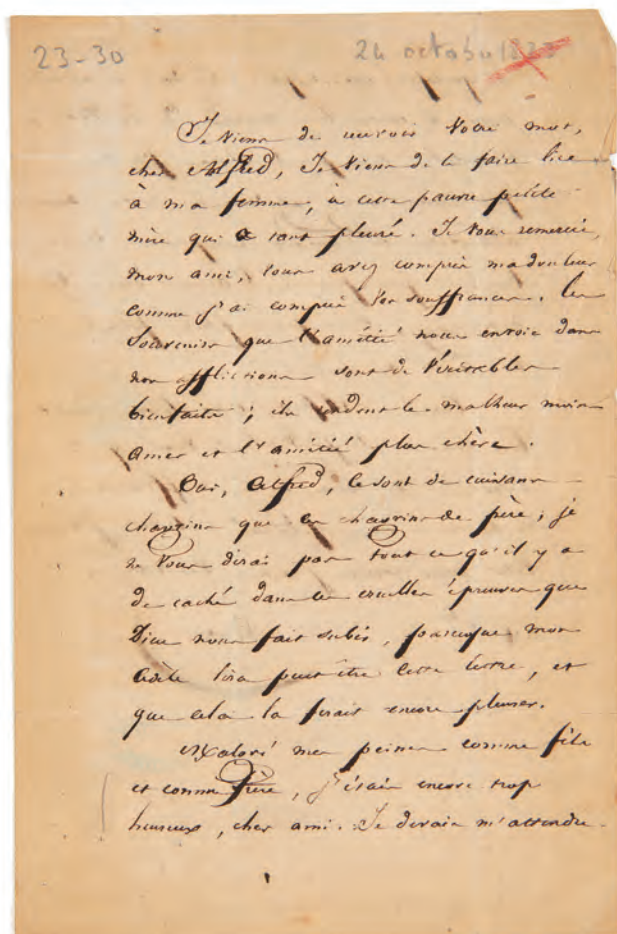 23-30
24 octobre 1823
Je viens de recevoir votre mot,
cher Alfred, Je viens de le faire lire
à ma femme, à cette pauvre petite
mère qui a tant pleuré. Je vous remercie,
mon ami, vous avez compris ma douleur
comme j'ai compris vos souffrances. Les
souvenirs que l'amitié nous envoie dans
nos afflictions sont de véritables
bienfaits ; ils rendent le malheur moins
amer et l'amitié plus chère.
Oui, Alfred, ce sont de cuisans
chagrins que les chagrins de père ; je
ne vous dirai pas tout ce qu'il y a
de caché dans les cruelles épreuves que
Dieu nous fait subir, parceque mon
Adèle lira peut être cette lettre, et
que cela la ferait encore pleurer.
Malgré mes peines comme fils
et comme frère, j'étais encore trop
heureux, cher ami. Je devais m'attendre